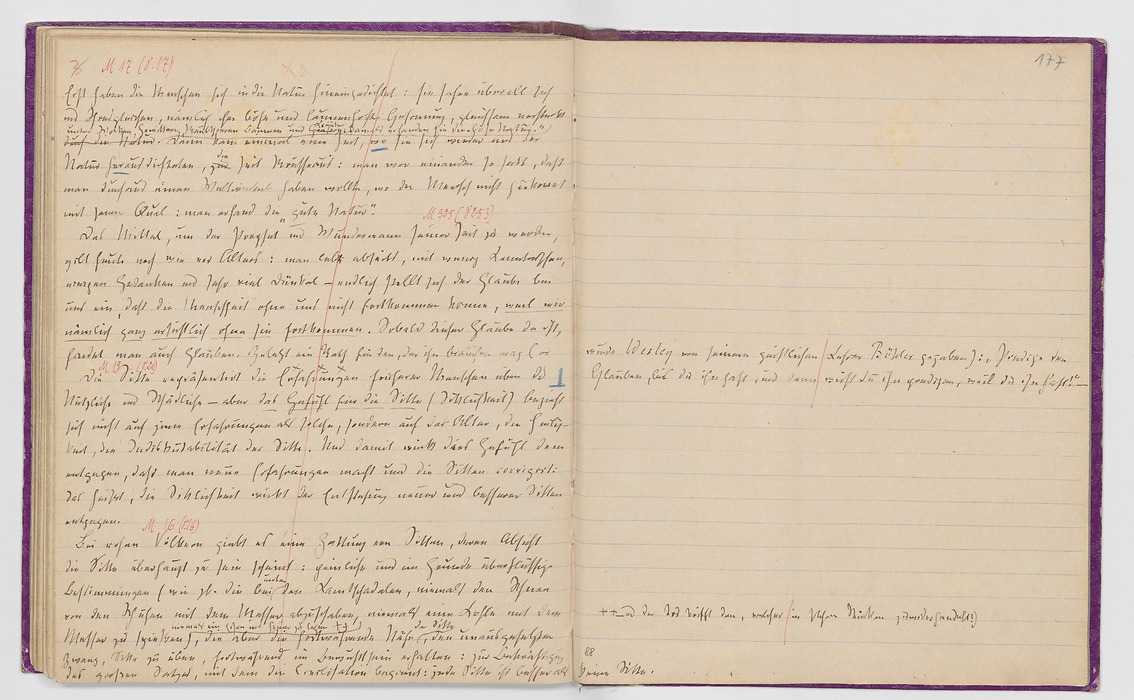 M 17 (S. 17)
Erst haben die Menschen sich in die Natur hineingedichtet: sie sahen überall sich
und Ihresgleichen, nämlich ihre böse und launenhafte Gesinnung, gleichsam versteckt
unter Wolken, Gewittern, Raubthieren Bäumen und Kräutern: damals erfanden sie die „böse Natur."
durch die Natur. Dann kam einmal eine Zeit, wo sie sich wieder aus der
Natur herausdichteten, die Zeit Rousseaus: man war einander so satt, daß
man durchaus einen Weltwinkel haben wollte, wo der Mensch nicht hinkommt
mit seiner Qual: man erfand die „gute Natur".
M 325 (S 253)
Das Mittel, um der Prophet und Wundermann seiner Zeit zu werden,
gilt heute noch wie vor Alters: man lebe abseits, mit wenig Kenntnissen,
einigen Gedanken und sehr viel Dünkel – endlich stellt sich der Glaube bei
uns ein, daß die Menschheit ohne uns nicht fortkommen könne, weil wir
nämlich ganz ersichtlich ohne sie fortkommen. Sobald dieser Glaube da ist,
findet man auch Glauben. Zuletzt ein Rath für den, der ihn brauchen mag (er
M 19
Die Sitte repräsentirt die Erfahrungen früherer Menschen über das
Nützliche und Schädliche – aber das Gefühl für die Sitte (Sittlichkeit) bezieht
sich nicht auf jene Erfahrungen als solche, sondern auf das Alter, die Heilig-
keit, die Indiskutabilität der Sitte. Und damit wirkt dies Gefühl dem
entgegen, daß man neue Erfahrungen macht und die Sitten corrigirt:
das heißt, die Sittlichkeit wirkt der Entstehung neuer und besserer Sitten
entgegen.
M 16 (S16)
Bei rohen Völkern giebt es eine Gattung von Sitten, deren Absicht
die Sitte überhaupt zu sein scheint: peinliche und im Grunde überflüssige
Bestimmungen (wie zb. die unter den Kamtschadalen, niemals den Schnee
von den Schuhen mit dem Messer abzuschaben, niemals eine Kohle mit dem
niemals ein Eisen in's Feuer zu legen ++ der Sitte
Messer zu spießen), die aber die fortwährende Nähe, den unausgesetzten
Zwang, Sitte zu üben, fortwährend im Bewußtsein erhalten: zur Bekräftigung
des großen Satzes, mit dem die Civilisation beginnt: jede Sitte ist besser als
177
wurde Wesley von seinem geistlichen Lehrer Böhler gegeben): „Predige den
Glauben, bis du ihn hast, und dann wirst du ihn predigen, weil du ihn hast!" –
++ – und der Tod trifft den, welcher in solchen Stücken zuwiderhandelt!)
88
keine Sitte.